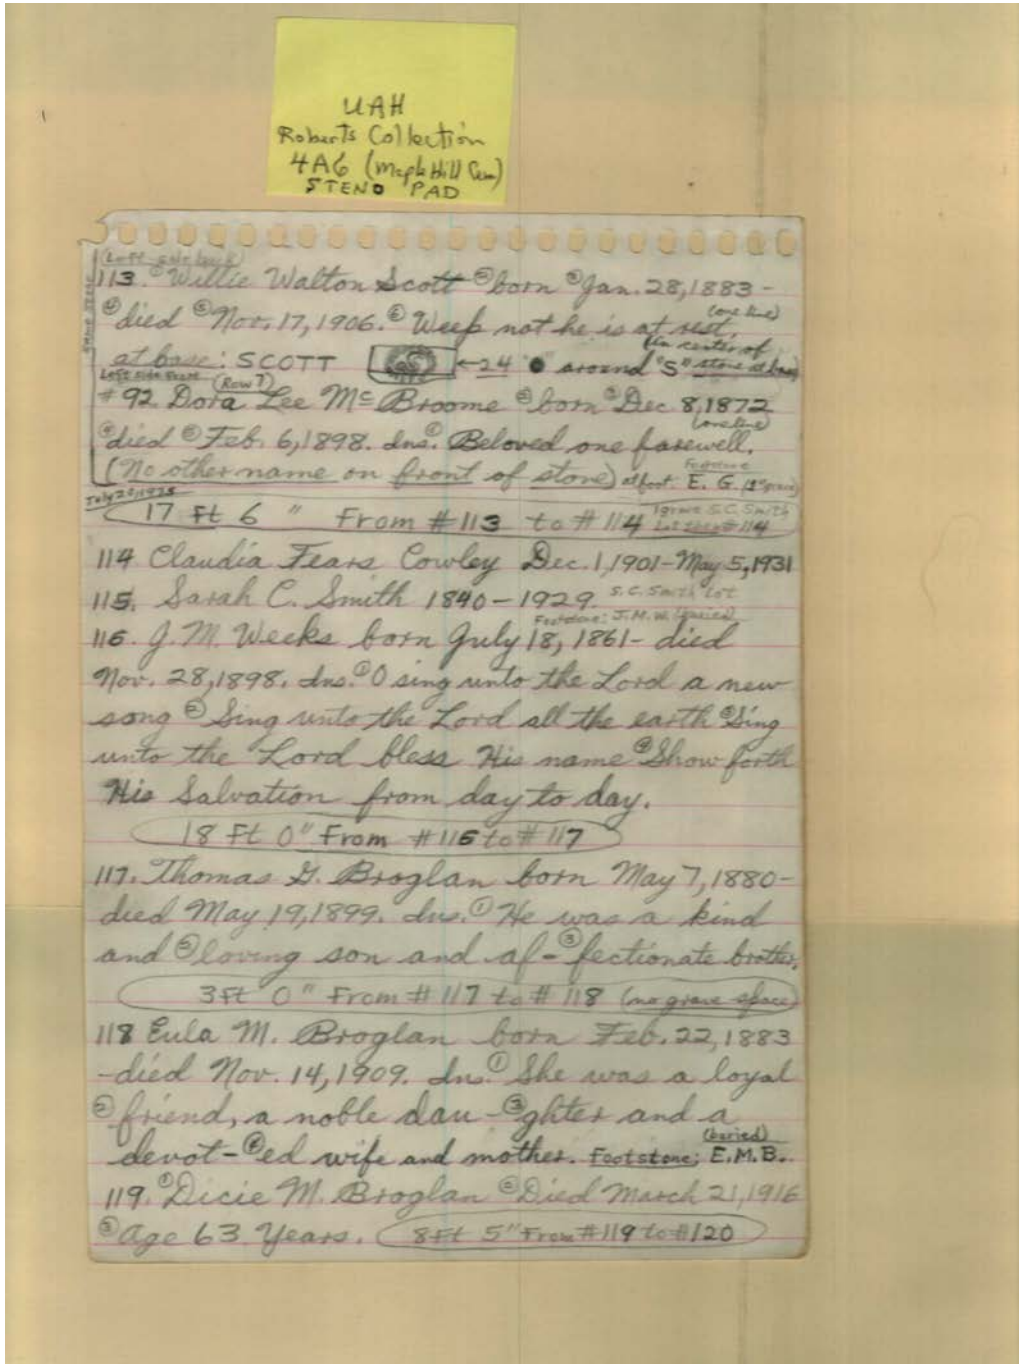 UAH
Roberts Collection
4A6 (Maple Hill Cem)
STENO PAD
(Left side back)
113. ① Willie Walton Scott ② born ③ Jan. 28, 1883 -
④ died ⑤ Nov. 17, 1906. ⑥ Weep not he is at rest.
(one line)
at base: SCOTT S ← 24 ● around "S" stone at base)
(in center of
Left side front (Row 7)
# 92 Dora Lee Mc Broome ② born ③ Dec 8, 1872
(one line)
④ died ⑤ Feb. 6, 1898. Ins. ① Beloved one farewell.
(No other name on front of stone) at foot: E. G.
Footstone
July 20, 1975
17 Ft 6 " From #113 to # 114
1 grave S.C. Smith
Lot #114
114 Claudia Fears Cowley Dec. 1, 1901 - May 5, 1931
115. Sarah C. Smith 1840 - 1929. S.C. Smith Lot
Footstone: J.M.W. (buried)
116. J. M. Weeks born July 18, 1861 - died
Nov. 28, 1898. Ins. ① O sing unto the Lord a new
song ② Sing unto the Lord all the earth ③ Sing
unto the Lord bless His name ④ Show forth
His Salvation from day to day.
18 Ft 0" From #116 to # 117
117. Thomas G. Broglan born May 7, 1880 -
died May 19, 1899. Ins. ① He was a kind
and ② loving son and af- ③ fectionate brother.
3 Ft 0" From # 117 to # 118 (no grave space)
118 Eula M. Broglan born Feb. 22, 1883
- died Nov. 14, 1909. Ins. ① She was a loyal
② friend, a noble dau- ③ ghter and a
(buried)
devot- ④ ed wife and mother. Footstone; E.M.B.
119. ① Dicie M. Broglan ② Died March 21, 1916
③ Age 63 Years. 8 Ft 5" From #119 to #120